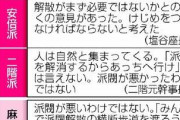 安倍派
解散がまず必要ではないかとの
くの意見があった。けじめをつ
なければならないと考えた
(塩谷座
二階派
人は自然と集まってくる。「派
を解消するからあっちへ行け」
は言えない。派閥が悪かったわ
ではない
(二階元幹事
麻
派閥が悪いわけではない。「み